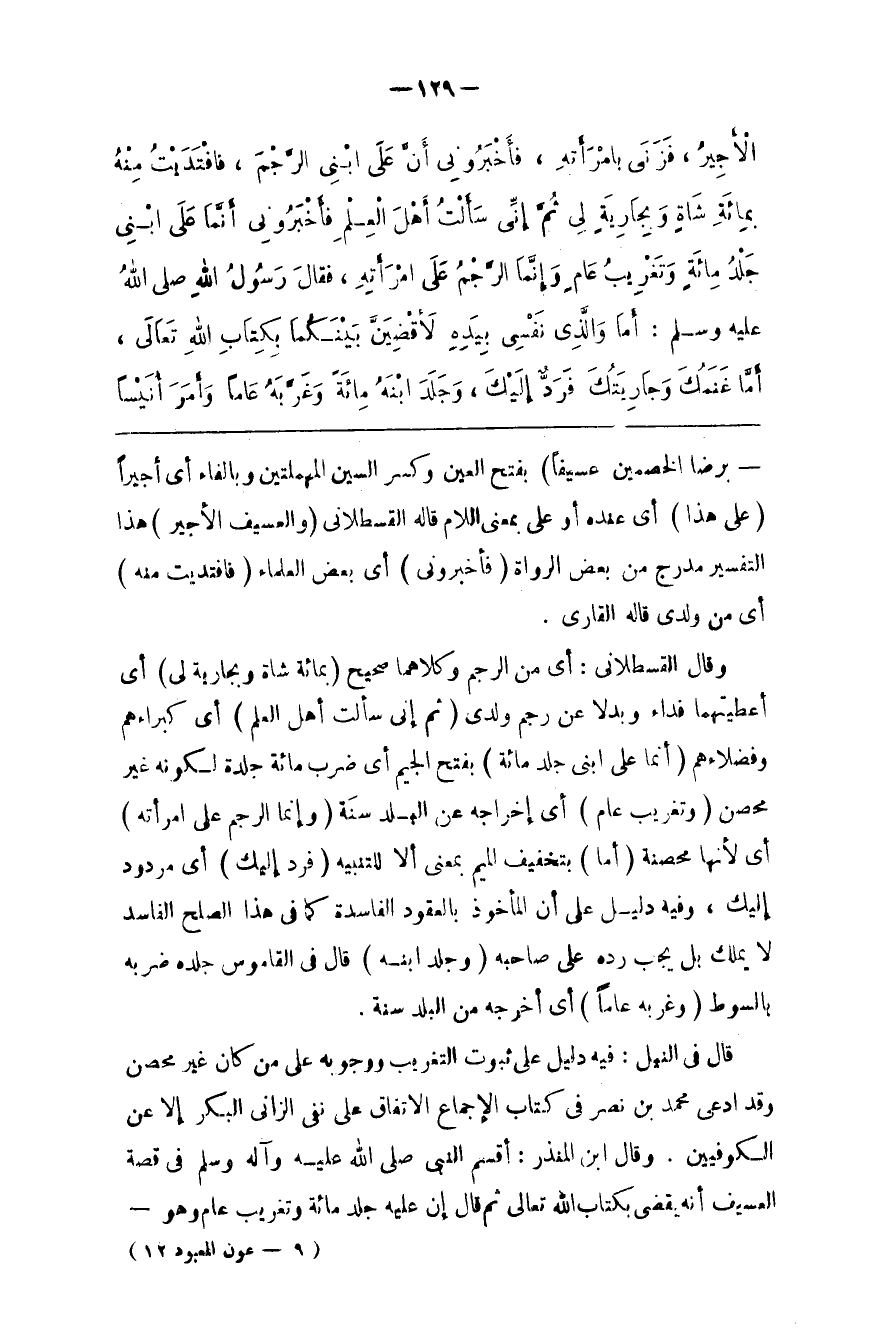 — ١٢٩ —
الْأَجِيرُ ، فَزَنَى بامْرَأَتهِ ، فأَخْبَرُونِى أَنَّ عَلَى ابْنِى الرَّجْمَ ، فافْتَدَيْتُ مِنْهُ
بِمائَةِ شَاةٍ وَبِجَارِيَةٍ لِى ثُمَّ إنِّى سَأَلْتُ أهْلَ الْعِلْمِ فأَخْبَرُونِى أَنَّمَا عَلَى ابْنِى
جَلْدُ مِائَةٍ وَتَغْرِيبُ عَامٍ وَإنَّمَا الرَّجْمُ عَلَى امْرَأَتهِ ، فقالَ رَسُولُ اللهِ صلى اللهُ
عليه وسلم : أمَا وَالَّذِى نَفْسِى بِيَدِهِ لَأَقْضِيَنَّ بَيْنَكُما بِكِتَابِ اللهِ تَعَالَى ،
أَمَّا غَنَمُكَ وَجارِيَتُكَ فَرَدٌّ إلَيْكَ ، وَجَلَدَ ابْنَهُ مِائَةً وَغَرَّبَهُ عَاماً وَأمَرَ أُنَيْساً
— برضا الخصمين عسيفاً) بفتح العين وكسر السين المهملتين وبالفاء أى أجيراً
( على هذا ) أى عنده أو على بمعنى اللام قاله القسطلانى (والعسيف الأجير ) هذا
التفسير مدرج من بعض الرواة ( فأخبرونى ) أى بعض العلماء ( فافتديت منه )
أى من ولدى قاله القارى .
وقال القسطلانى : أى من الرجم وكلاهما صحيح (بمائة شاة وبجارية لى) أى
أعطيتهما فداء وبدلا عن رجم ولدى ( ثم إنى سألت أهل العلم ) أى كبراءهم
وفضلاءهم ( أنما على ابنى جلد مائة ) بفتح الجيم أى ضرب مائة جلدة لكونه غير
محصن ( وتغريب عام ) أى إخراجه عن البلد سنة ( وإنما الرجم على امرأته )
أى لأنها محصنة ( أما ) بتخفيف الميم بمعنى ألا للتنبيه ( فرد إليك ) أى مردود
إليك ، وفيه دليل على أن المأخوذ بالعقود الفاسدة كما فى هذا الصلح الفاسد
لا يملك بل يجب رده على صاحبه ( وجلد ابنه ) قال فى القاموس جلده ضربه
بالسوط ( وغربه عاماً ) أى أخرجه من البلد سنة .
قال فى النيل : فيه دليل على ثبوت التغريب ووجوبه على من كان غير محصن
وقد ادعى محمد بن نصر فى كتاب الإجماع الاتفاق على نفى الزانى البكر إلا عن
الكوفيين . وقال ابن المنذر : أقسم النبى صلى الله عليه وآله وسلم فى قصة
العسيف أنه يقضى بكتاب الله تعالى ثم قال إن عليه جلد مائة وتغريب عام وهو —
( ٩ — عون المعبود ١٢ )